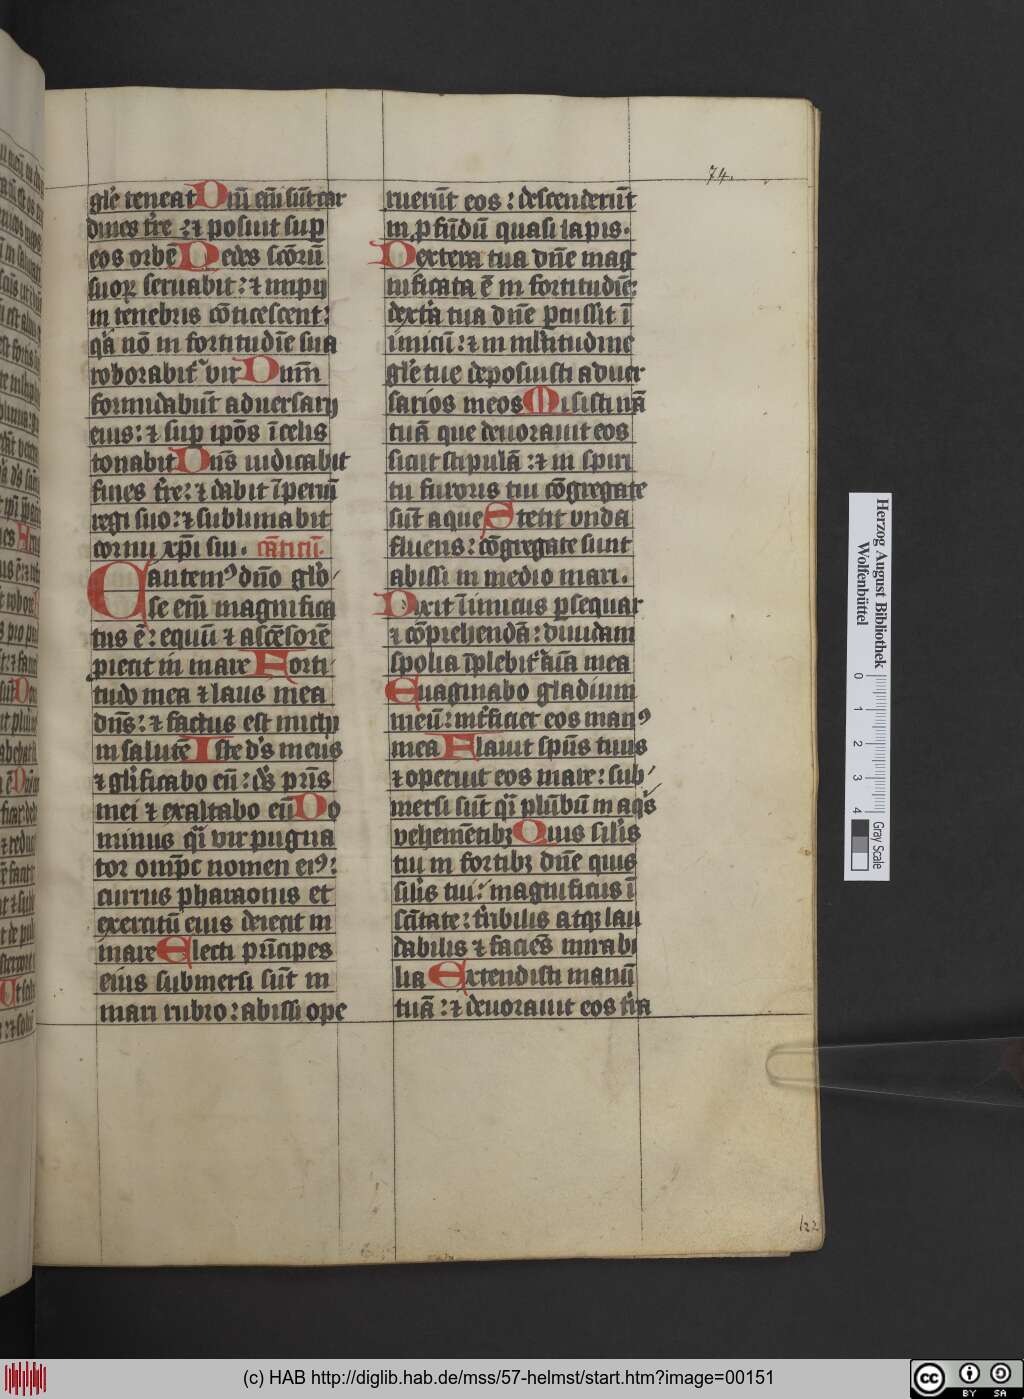 74.
glē teneat Dnī eñi sūt car
dines tr̄e : ⁊ posuit sup̱
eos orbē Pedes scōrū
suoꝝ seruabit : ⁊ impij
in tenebris cōticescent :
qᷓ nō in fortitudīe sua
roborabit᷑ vir Dnm̄
formidabūt aduersarij
eius : ⁊ sup̱ ipōs ī celis
tonabit Dn̄s iudicabit
fines tr̄e : ⁊ dabit īperiū
regi suo : ⁊ sublimabit
cornu xp̄i sui . cāticū.
Cantemꝰ dn̄o gl̄o
se em̄ magnifica
tus ē : equū ⁊ ascēsorē
ꝓiecit in mare Forti
tudo mea ⁊ laus mea
dn̄s : ⁊ factus est michi
in salutē Iste ds̄ meus
⁊ glīficabo eū : ds̄ prīs
mei ⁊ exaltabo eū Do
minus qͥ vir pugna
tor omp̄c nomen eiꝰ :
currus pharaonis et
exercitū eius deiecit in
mare Electi prīcipes
eius submersi sūt in
mari rubro : abissi ope
ruerūt eos : descenderūt
in ꝓfūdū quasi lapis .
Dextera tua dn̄e mag
nificata ē in fortitudīe :
dext̄a tua dn̄e ꝑcussit ī
imicū : ⁊ in ml̄titudine
glē tue deposuisti aduer
sarios meos Misisti irā
tuā que deuorauit eos
sicut stipulā : ⁊ in spiri
tu furoris tui cōgregate
sūt aque Stetit vnda
fluens : cōgregate sunt
abissi in medio mari .
Dixit īimicus ꝑsequar
⁊ cōprehendā : diuidam
spolia īplebit᷑ aīa mea
Euaginabo gladium
meū : int̄ficiet eos manꝰ
mea Flauit sp̄us tuus
⁊ operuit eos mare : sub
mersi sūt qͣ plūbū in aqͥs
vehemētibꝫ Quis sil̄is
tui in fortibꝫ dn̄e quis
sil̄is tui : magnificus ī
sc̄itate : tr̄ibilis atqꝫ lau
dabilis ⁊ faciēs mirabi
lia Extendisti manū
tuā : ⁊ deuorauit eos tr̄a
122
Herzog August Bibliothek
Wolfenbüttel
0 1 2 3 4
Gray Scale
(c) HAB http://diglib.hab.de/mss/57-helmst/start.htm?image=00151
cc BY SA